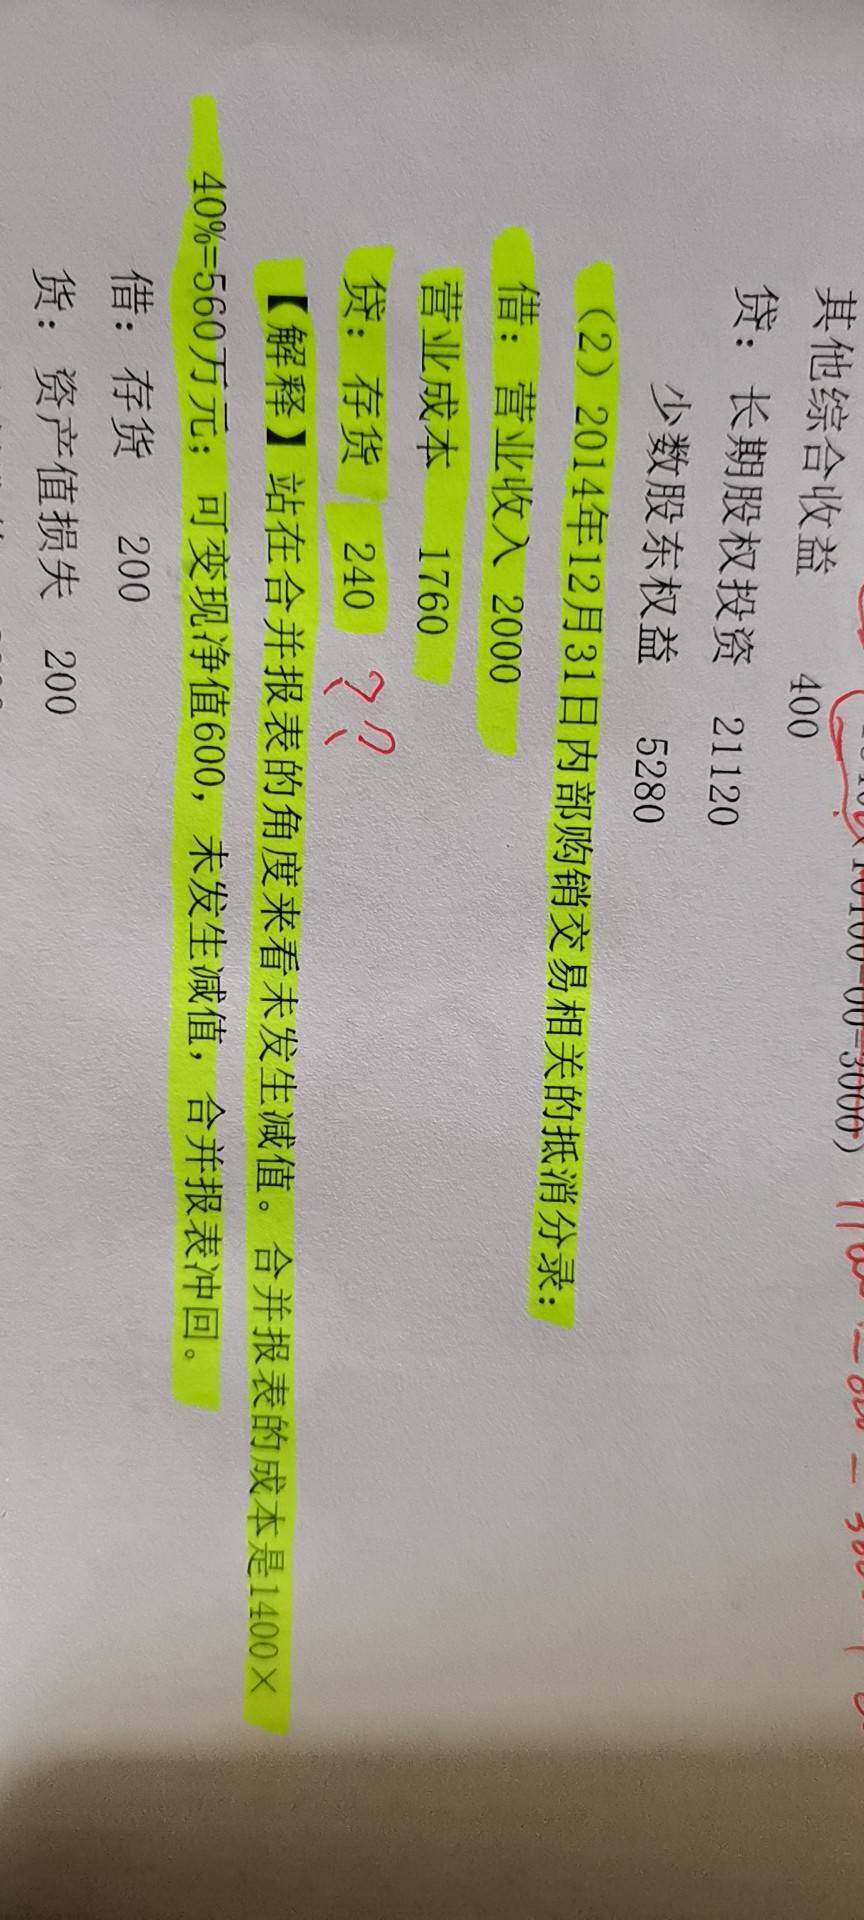 其他综合收益 400
贷：长期股权投资 21120
少数股东权益 5280
（2）2014年12月31日内部购销交易相关的抵消分录：
借：营业收入 2000
营业成本 1760
贷：存货 240 ??
【解释】站在合并报表的角度来看未发生减值。合并报表的成本是1400×
40%=560万元；可变现净值600，未发生减值，合并报表冲回。
借：存货 200
货：资产值损失 200